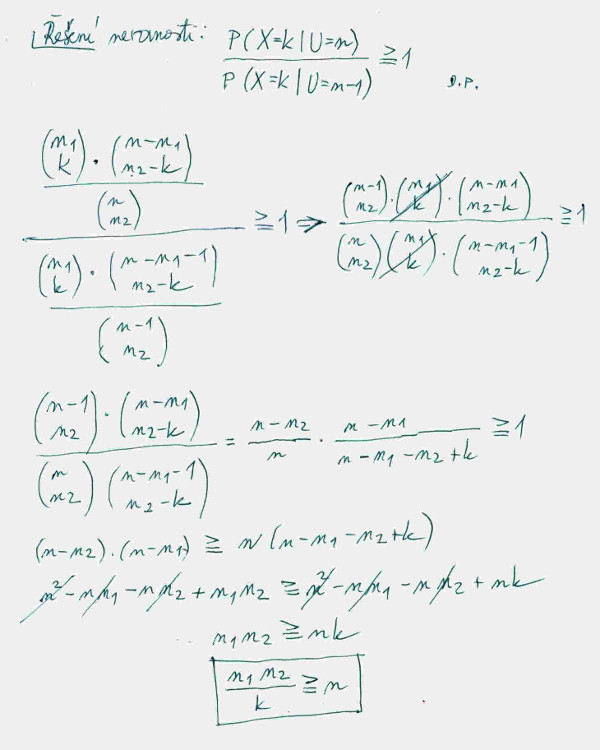 Řešení nerovnosti: P(X=k|U=n) / P(X=k|U=n-1) ≧ 1
D.P.
[(n1 k) · (n-n1 n2-k) / (n n2)] / [(n1 k) · (n-n1-1 n2-k) / (n-1 n2)] ≧ 1 ⇒ (n-1 n2) · (n1 k) · (n-n1 n2-k) / (n n2) (n1 k) · (n-n1-1 n2-k) ≧ 1
(n-1 n2) · (n-n1 n2-k) / (n n2) (n-n1-1 n2-k) = n-n2 / n · n-n1 / n-n1-n2+k ≧ 1
(n-n2) · (n-n1) ≧ n (n-n1-n2+k)
n² - n n1 - n n2 + n1 n2 ≧ n² - n n1 - n n2 + nk
n1 n2 ≧ nk
n1 n2 / k ≧ n